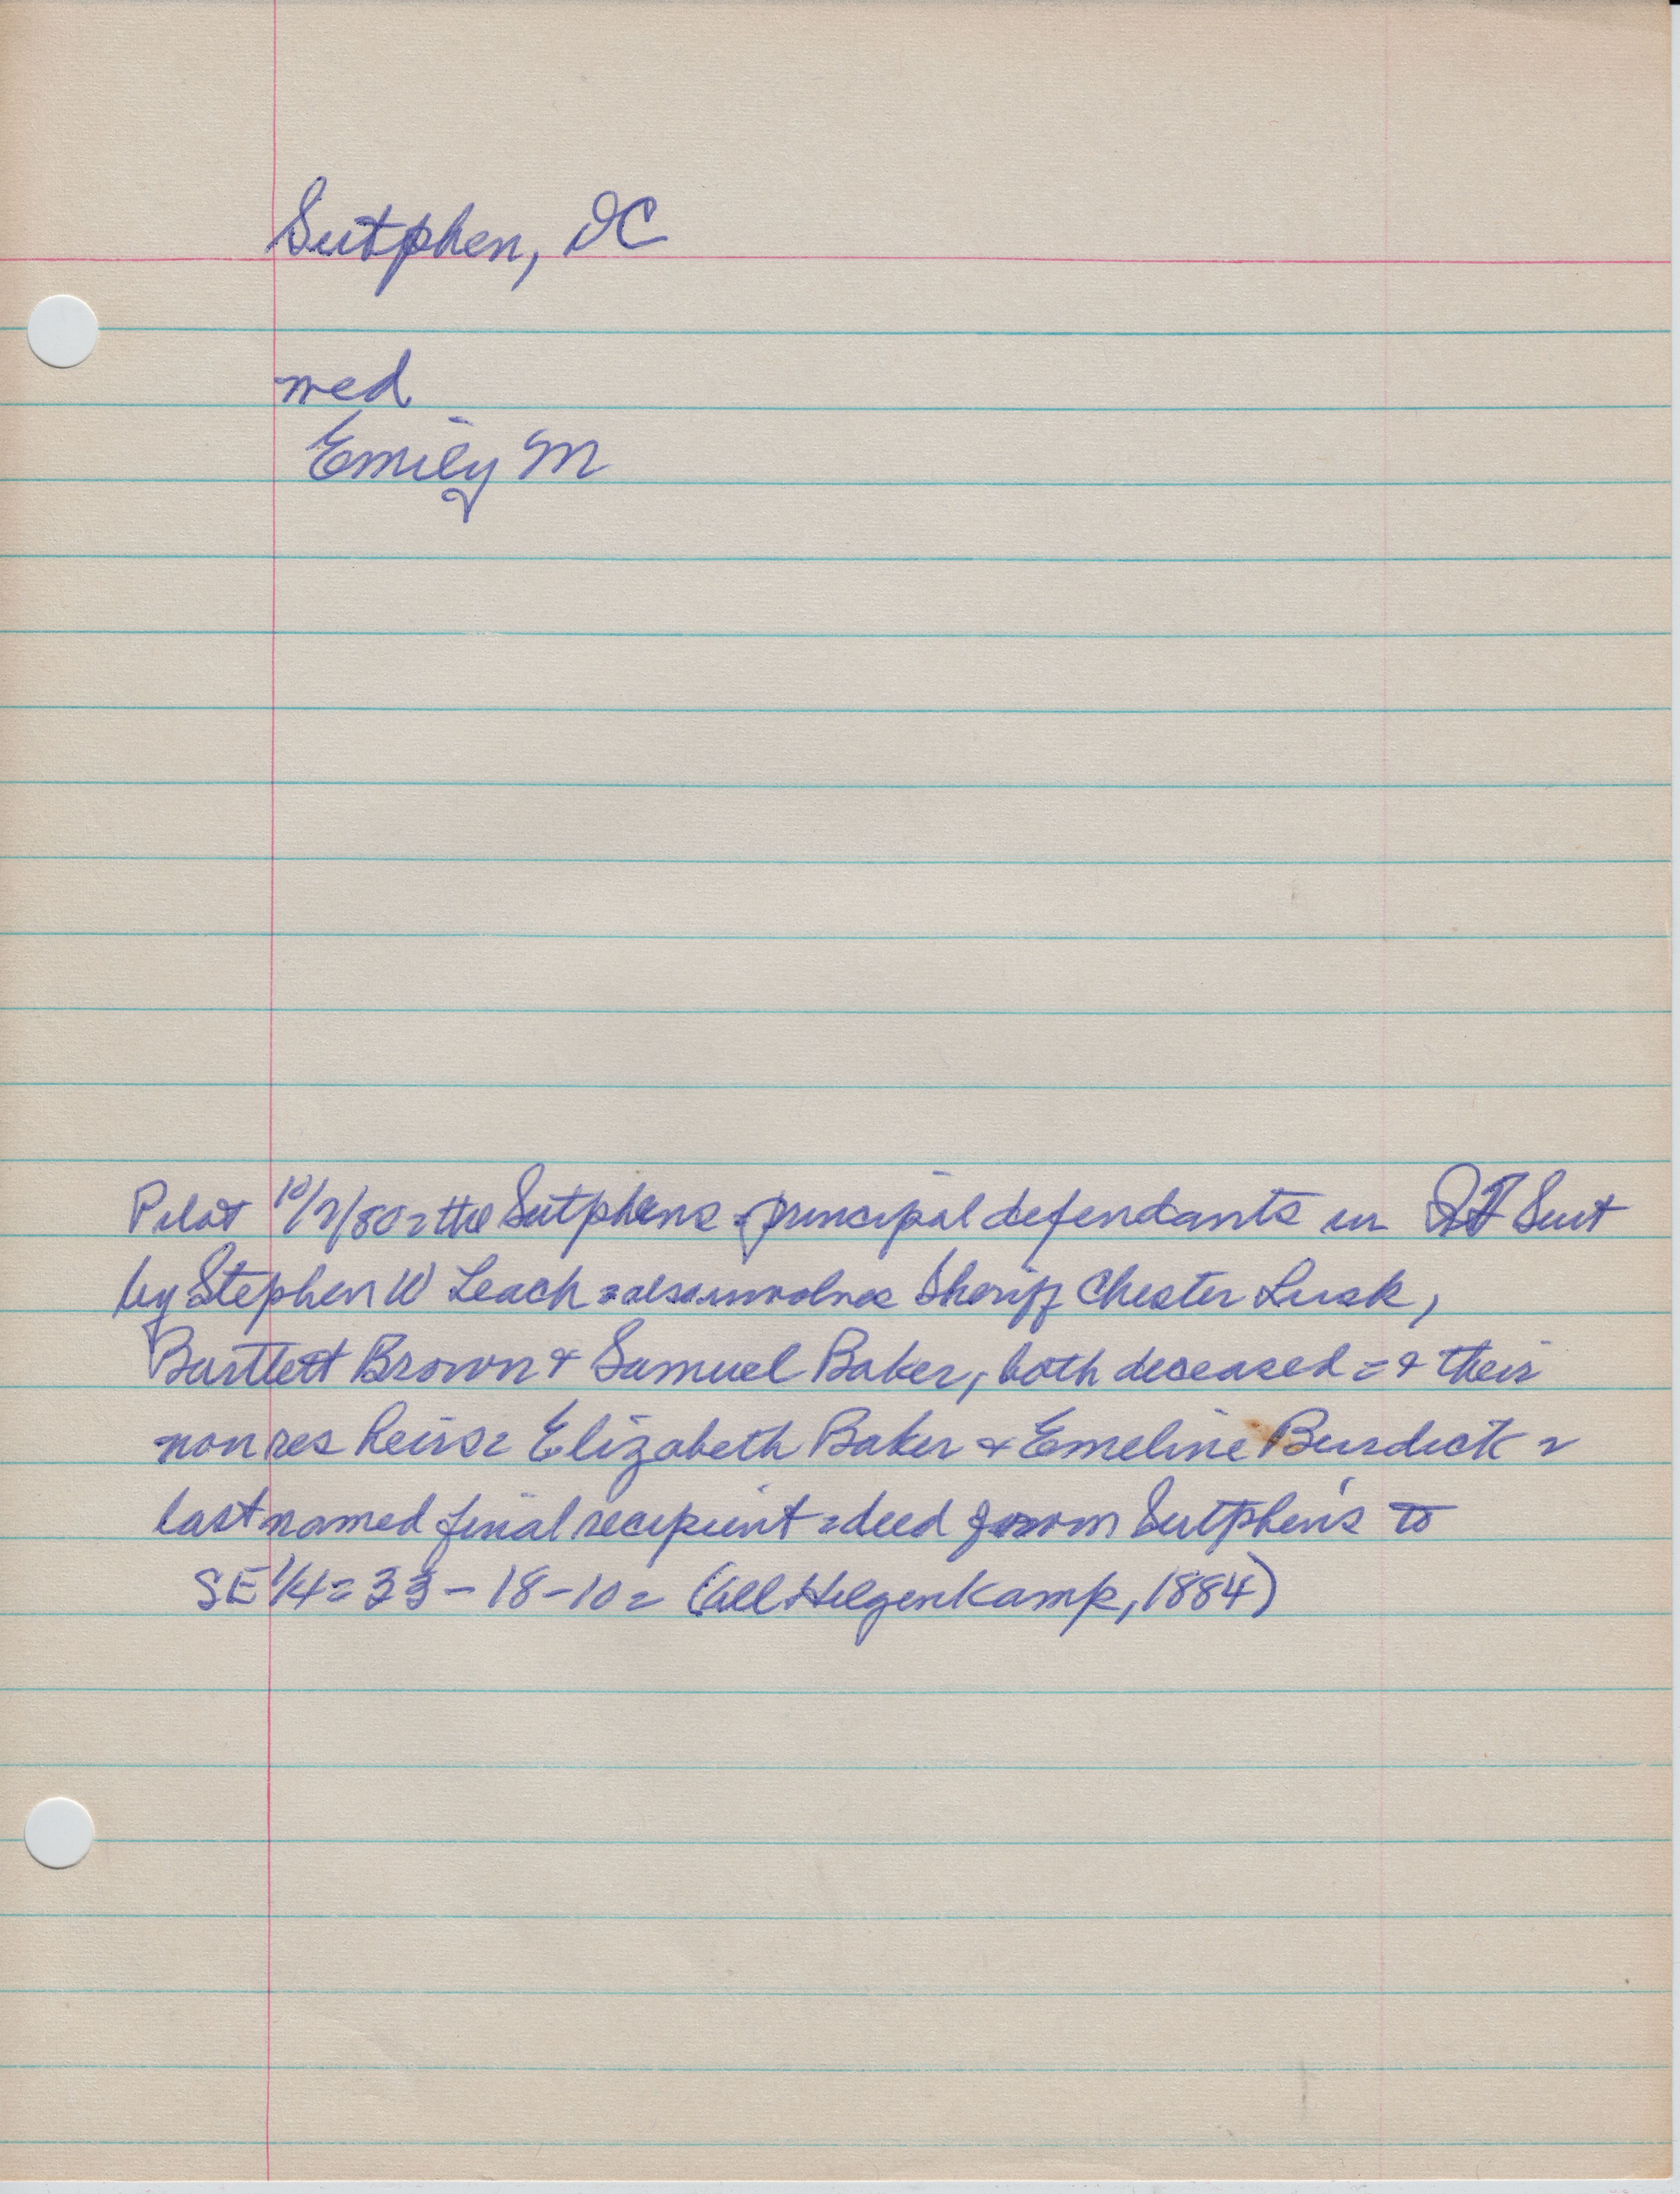 Sutphen, DC
wed
Emily M
Pilot 10/7/80 = the Sutphens = principal defendants in Suit
by Stephen W Leach = also involves Sheriff Chester Lusk,
Bartlett Brown & Samuel Baker, both deceased = & their
non res heirs = Elizabeth Baker & Emeline Burdick =
last named final recipient = deed from Sutphens to
SE 1/4 = 33 - 18 - 10 = (all Hilgenkamp, 1884)